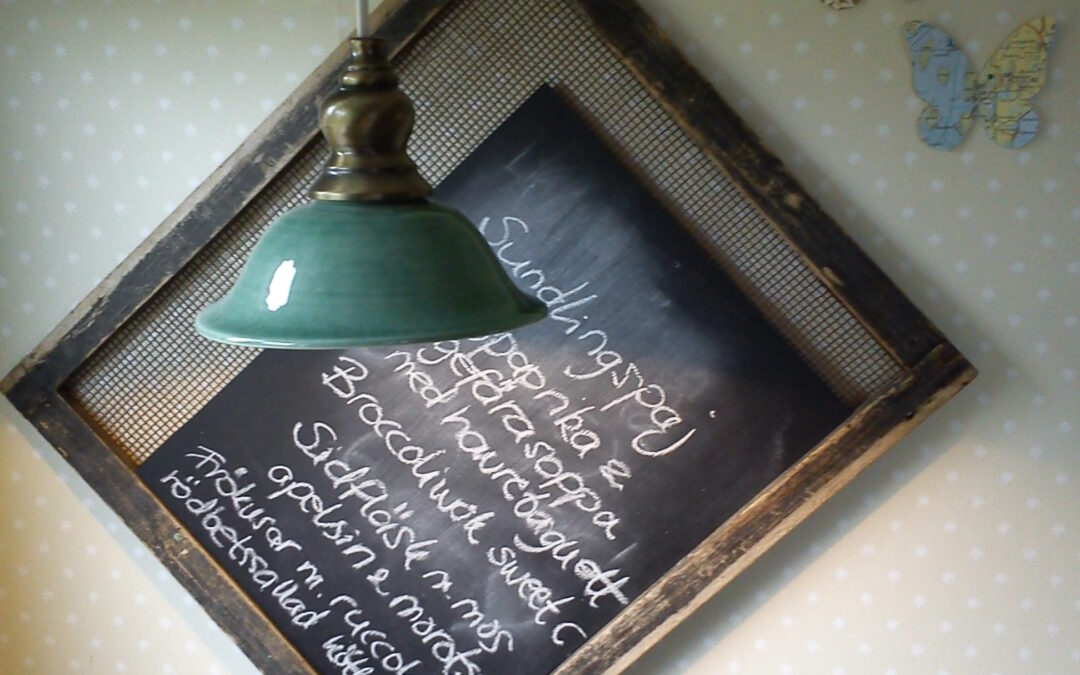 Sundlingspaj
paprika &
gefärasoppa
med havrebaguett
Broccoliwok sweet c
Sidfläsk m. mos
apelsin & morots
Frökusar m. ruccol
rödbetssallad